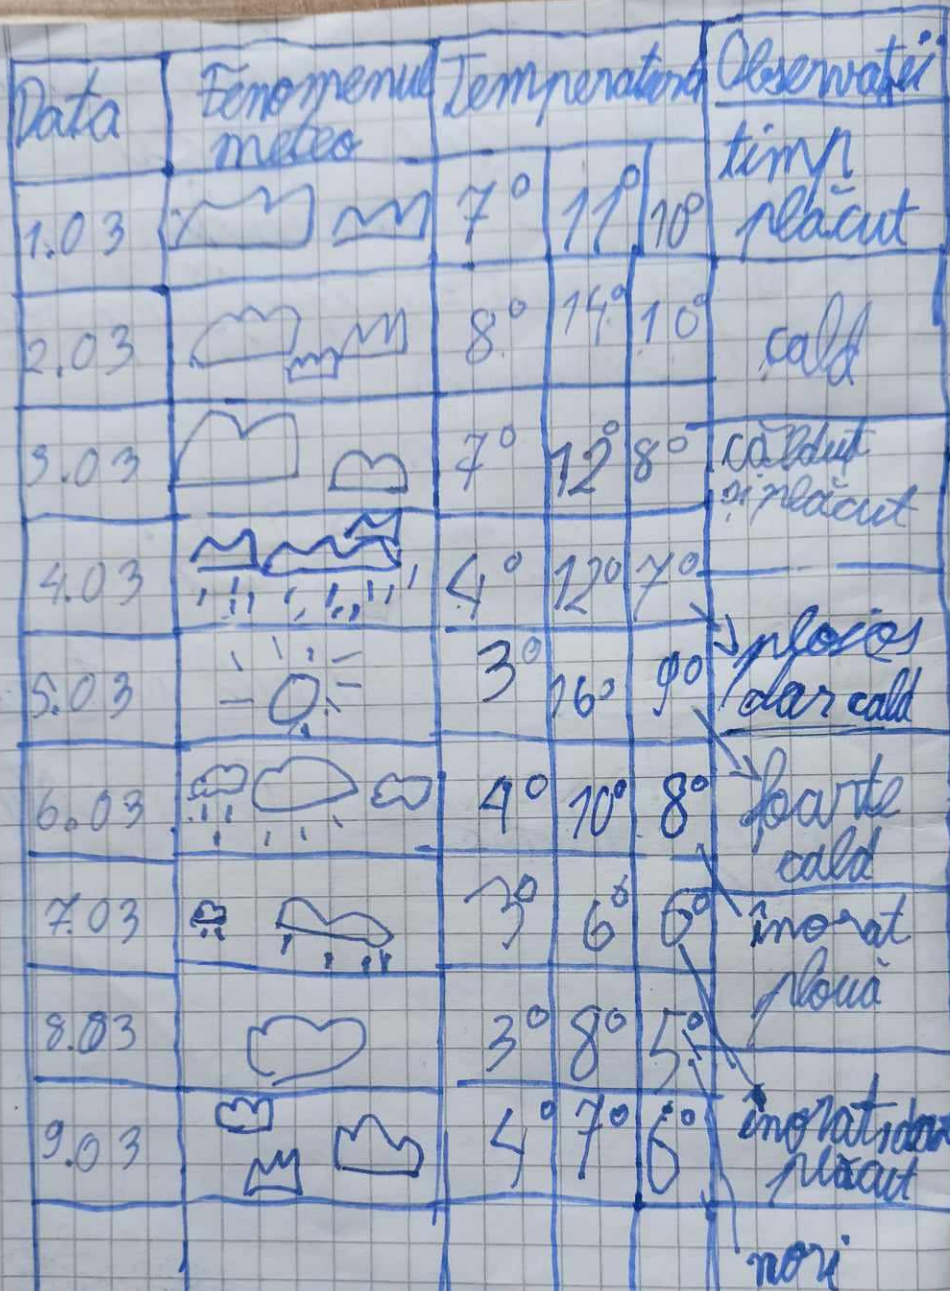 Data Fenomenul meteo Temperatura Observații
1.03 7° 11° 10° timp plăcut
2.03 8° 14° 10° cald
3.03 7° 12° 8° călduț și plăcut
4.03 4° 12° 7° ploios dar cald
5.03 3° 16° 9° foarte cald
6.03 4° 10° 8° înorat plouă
7.03 3° 6° 6° înorat, dar plăcut
8.03 3° 8° 5° nori
9.03 4° 7° 6°